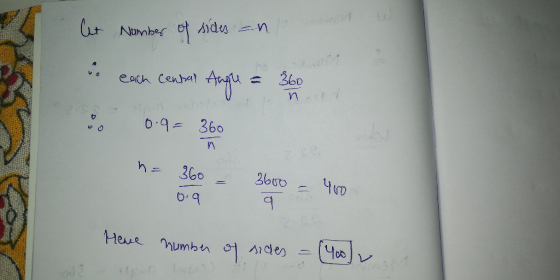 Let Number of sides = n
∴ each Central Angle = 360/n
∴ 0.9 = 360/n
n = 360/0.9 = 3600/9 = 400
Hence number of sides = 400 ✓